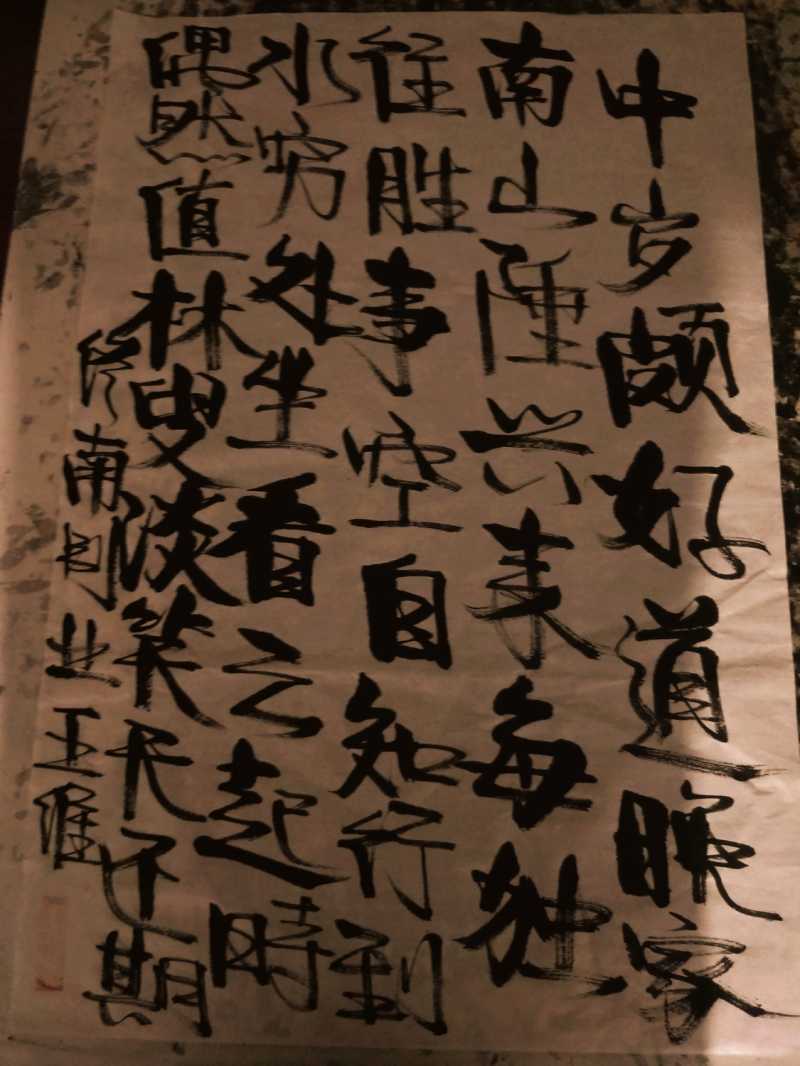 中岁颇好道晚家
南山陲兴来每独
往胜事空自知行到
水穷处坐看云起時
偶然值林叟谈笑无还期
终南别业王维